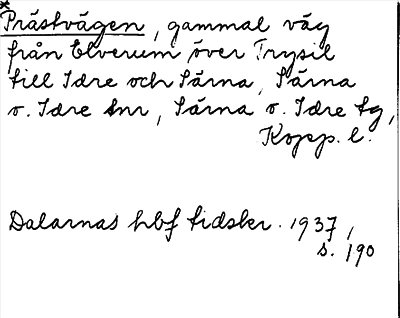 *Prästvägen, gammal väg
från Elverum över Trysil
till Idre och Särna, Särna
o. Idre snr, Särna o. Idre tg,
Kopp. l.
Dalarnas hbf tidskr. 1937,
s. 190